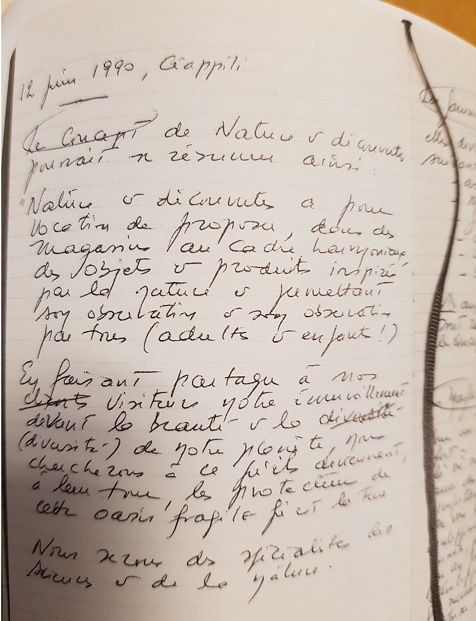 12 juin 1990, Ciappili
Le concept de Nature & découvertes
pourrait se résumer ainsi :
"Nature & découvertes a pour
vocation de proposer, dans des
magasins au cadre harmonieux
des objets & produits inspirés
par la nature & permettant
son observation & son observation
par tous (adultes & enfants !)
En faisant partager à nos
clients visiteurs notre émerveillement
devant la beauté & la diversité
(diversité) de notre planète, nous
chercherons à ce qu'ils deviennent,
à leur tour, les protecteurs de
cette oasis fragile qu'est la terre
Nous serons des spécialistes des
sciences & de la nature.